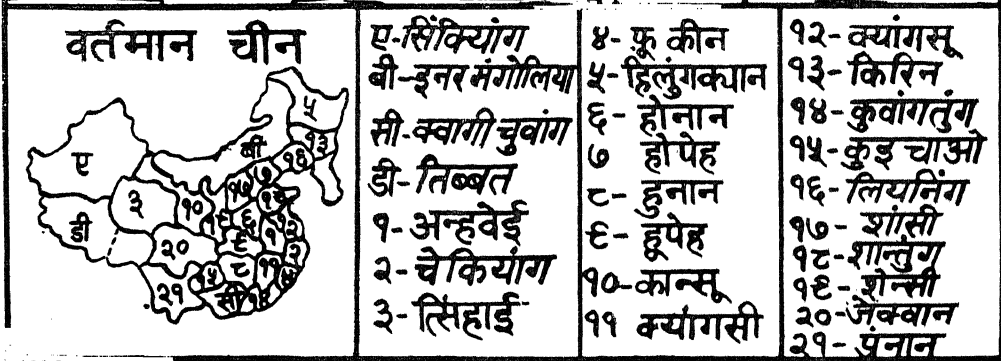 वर्तमान चीन
५
१३
बी
१६
ए
७
१७
३
१०
१८
६
डी
९
१
२०
८
११
१५
२१
सी
१४
ए-सिंक्यिांग
बी-इनर मंगोलिया
सी-क्वागी चुवांग
डी-तिब्बत
१-अन्हवेई
२-चेकियांग
३-त्सिंहाई
४-फू कीन
५-हिलुंगक्यान
६-होनान
७ होपेह
८-हुनान
९-हूपेह
१०-कान्सू
११ क्यांगसी
१२-क्यांगसू
१३-किरिन
१४-कुवांगतुंग
१५-कुइ चाओ
१६-लियनिंग
१७-शांसी
१८-शान्तुंग
१९-शेन्सी
२०-जेक्वान
२१-पूंनान